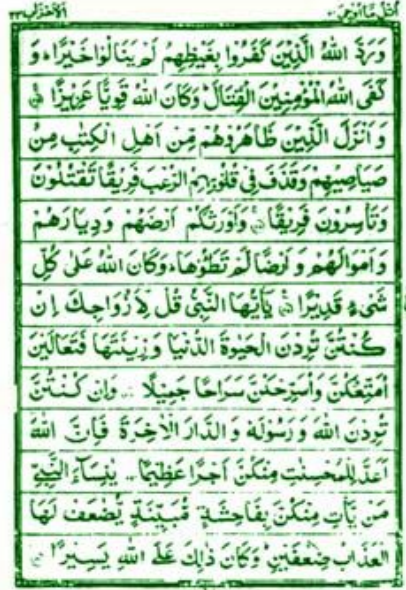 اتل ما اوحی ٢١ الاحزاب ٣٣
وَرَدَّ اللهُ الَّذِيْنَ كَفَرُوْا بِغَيْظِهِمْ لَمْ يَنَالُوْا خَيْرًا ؕ وَ
كَفَى اللهُ الْمُؤْمِنِيْنَ الْقِتَالَ ؕ وَكَانَ اللهُ قَوِيًّا عَزِيْزًا
وَ اَنْزَلَ الَّذِيْنَ ظَاهَرُوْهُمْ مِّنْ اَهْلِ الْكِتٰبِ مِنْ
صَيَاصِيْهِمْ وَقَذَفَ فِيْ قُلُوْبِهِمُ الرُّعْبَ فَرِيْقًا تَقْتُلُوْنَ
وَتَاْسِرُوْنَ فَرِيْقًا وَاَوْرَثَكُمْ اَرْضَهُمْ وَدِيَارَهُمْ
وَاَمْوَالَهُمْ وَ اَرْضًا لَّمْ تَطَئُوْهَا ؕ وَكَانَ اللهُ عَلٰى كُلِّ
شَيْءٍ قَدِيْرًا يٰۤاَيُّهَا النَّبِيُّ قُلْ لِّاَزْوَاجِكَ اِنْ
كُنْتُنَّ تُرِدْنَ الْحَيٰوةَ الدُّنْيَا وَ زِيْنَتَهَا فَتَعَالَيْنَ
اُمَتِّعْكُنَّ وَاُسَرِّحْكُنَّ سَرَاحًا جَمِيْلًا وَاِنْ كُنْتُنَّ
تُرِدْنَ اللهَ وَ رَسُوْلَهٗ وَ الدَّارَ الْاٰخِرَةَ فَاِنَّ اللهَ
اَعَدَّ لِلْمُحْسِنٰتِ مِنْكُنَّ اَجْرًا عَظِيْمًا يٰنِسَآءَ النَّبِيِّ
مَنْ يَّاْتِ مِنْكُنَّ بِفَاحِشَةٍ مُّبَيِّنَةٍ يُّضٰعَفْ لَهَا
الْعَذَابُ ضِعْفَيْنِ ؕ وَكَانَ ذٰلِكَ عَلَى اللهِ يَسِيْرًا